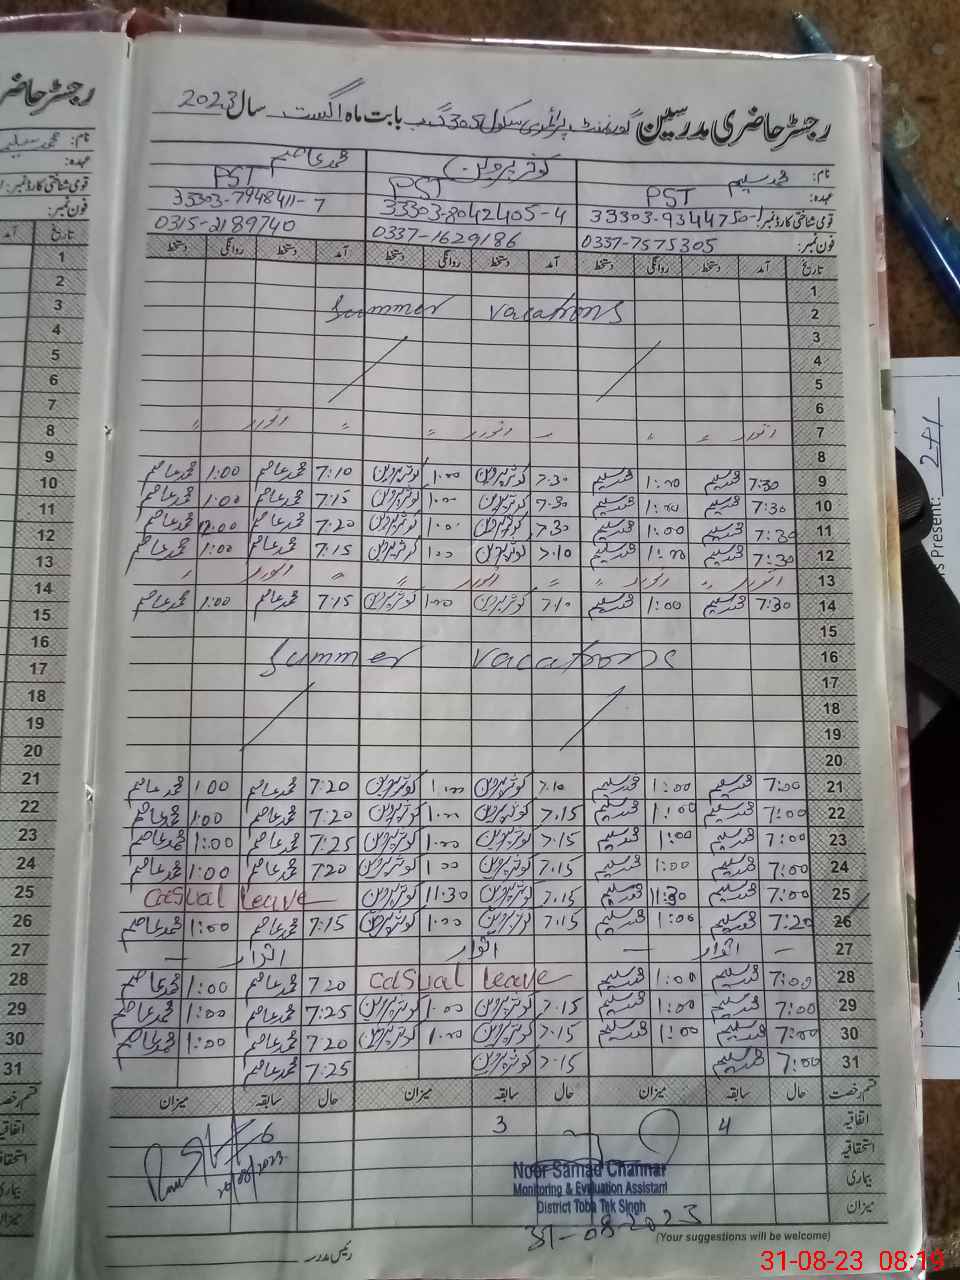 رجسٹر حاضری مدرسین گورنمنٹ پرائمری سکول 305 گ ب بابت ماہ اگست سال 2023
نام: محمد سلیم کوثر پروین محمد عاصم
عہدہ: PST PST PST
قومی شناختی کارڈ نمبر: 33303-9344750-1 33303-8042405-4 33303-7948411-7
فون نمبر: 0337-7575305 0337-1629186 0315-2189740
تاریخ آمد دستخط روانگی دستخط آمد دستخط روانگی دستخط آمد دستخط روانگی دستخط
1
2 Summer vacations
3
4
5
6
7 اتوار اتوار اتوار
8
9 7:30 محمد سلیم 1:00 محمد سلیم 7:30 کوثر پروین 1:00 کوثر پروین 7:10 محمد عاصم 1:00 محمد عاصم
10 7:30 محمد سلیم 1:00 محمد سلیم 7:30 کوثر پروین 1:00 کوثر پروین 7:15 محمد عاصم 1:00 محمد عاصم
11 7:30 محمد سلیم 1:00 محمد سلیم 7:30 کوثر پروین 1:00 کوثر پروین 7:20 محمد عاصم 12:00 محمد عاصم
12 7:30 محمد سلیم 1:00 محمد سلیم 7:10 کوثر پروین 1:00 کوثر پروین 7:15 محمد عاصم 1:00 محمد عاصم
13 اتوار اتوار اتوار اتوار
14 7:30 محمد سلیم 1:00 محمد سلیم 7:10 کوثر پروین 1:00 کوثر پروین 7:15 محمد عاصم 1:00 محمد عاصم
15
16 Summer vacations
17
18
19
20
21 7:00 محمد سلیم 1:00 محمد سلیم 7:10 کوثر پروین 1:00 کوثر پروین 7:20 محمد عاصم 1:00 محمد عاصم
22 7:00 محمد سلیم 1:00 محمد سلیم 7:15 کوثر پروین 1:00 کوثر پروین 7:20 محمد عاصم 1:00 محمد عاصم
23 7:00 محمد سلیم 1:00 محمد سلیم 7:15 کوثر پروین 1:00 کوثر پروین 7:25 محمد عاصم 1:00 محمد عاصم
24 7:00 محمد سلیم 1:00 محمد سلیم 7:15 کوثر پروین 1:00 کوثر پروین 7:20 محمد عاصم 1:00 محمد عاصم
25 7:00 محمد سلیم 11:30 محمد سلیم 7:15 کوثر پروین 11:30 کوثر پروین Casual leave
26 7:20 محمد سلیم 1:00 محمد سلیم 7:15 کوثر پروین 1:00 کوثر پروین 7:15 محمد عاصم 1:00 محمد عاصم
27 اتوار اتوار اتوار
28 7:00 محمد سلیم 1:00 محمد سلیم Casual leave 7:20 محمد عاصم 1:00 محمد عاصم
29 7:00 محمد سلیم 1:00 محمد سلیم 7:15 کوثر پروین 1:00 کوثر پروین 7:25 محمد عاصم 1:00 محمد عاصم
30 7:00 محمد سلیم 1:00 محمد سلیم 7:15 کوثر پروین 1:00 کوثر پروین 7:20 محمد عاصم 1:00 محمد عاصم
31 7:00 محمد سلیم 7:15 کوثر پروین 7:25 محمد عاصم
قسم رخصت حال سابقہ میزان حال سابقہ میزان حال سابقہ میزان
اتفاقیہ 4 3 6
استحقاقیہ
بیماری
میزان
Noor Samad Channar
Monitoring & Evaluation Assistant
District Toba Tek Singh
31-08-2023
(Your suggestions will be welcome)
رئیس مدرسہ
31-08-23 08:19
رجسٹر حاضر
نام: محمد سلیم
عہدہ:
قومی شناختی کارڈ نمبر:
فون نمبر:
تاریخ آمد
1
2
3
4
5
6
7
8
9
10
11
12
13
14
15
16
17
18
19
20
21
22
23
24
25
26
27
28
29
30
31
s Present: 241